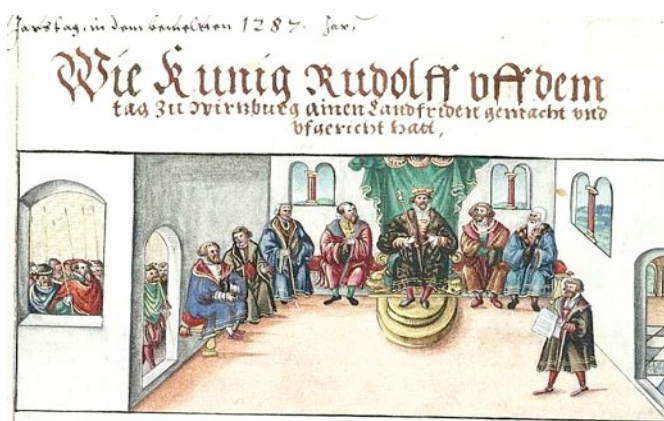 Jarstag, in dem bemelten 1287. Jar,
Wie Kunig Rudolff vff dem
tag zu Wirzburg ainen Landfriden gemacht vnd
vfgericht hatt,